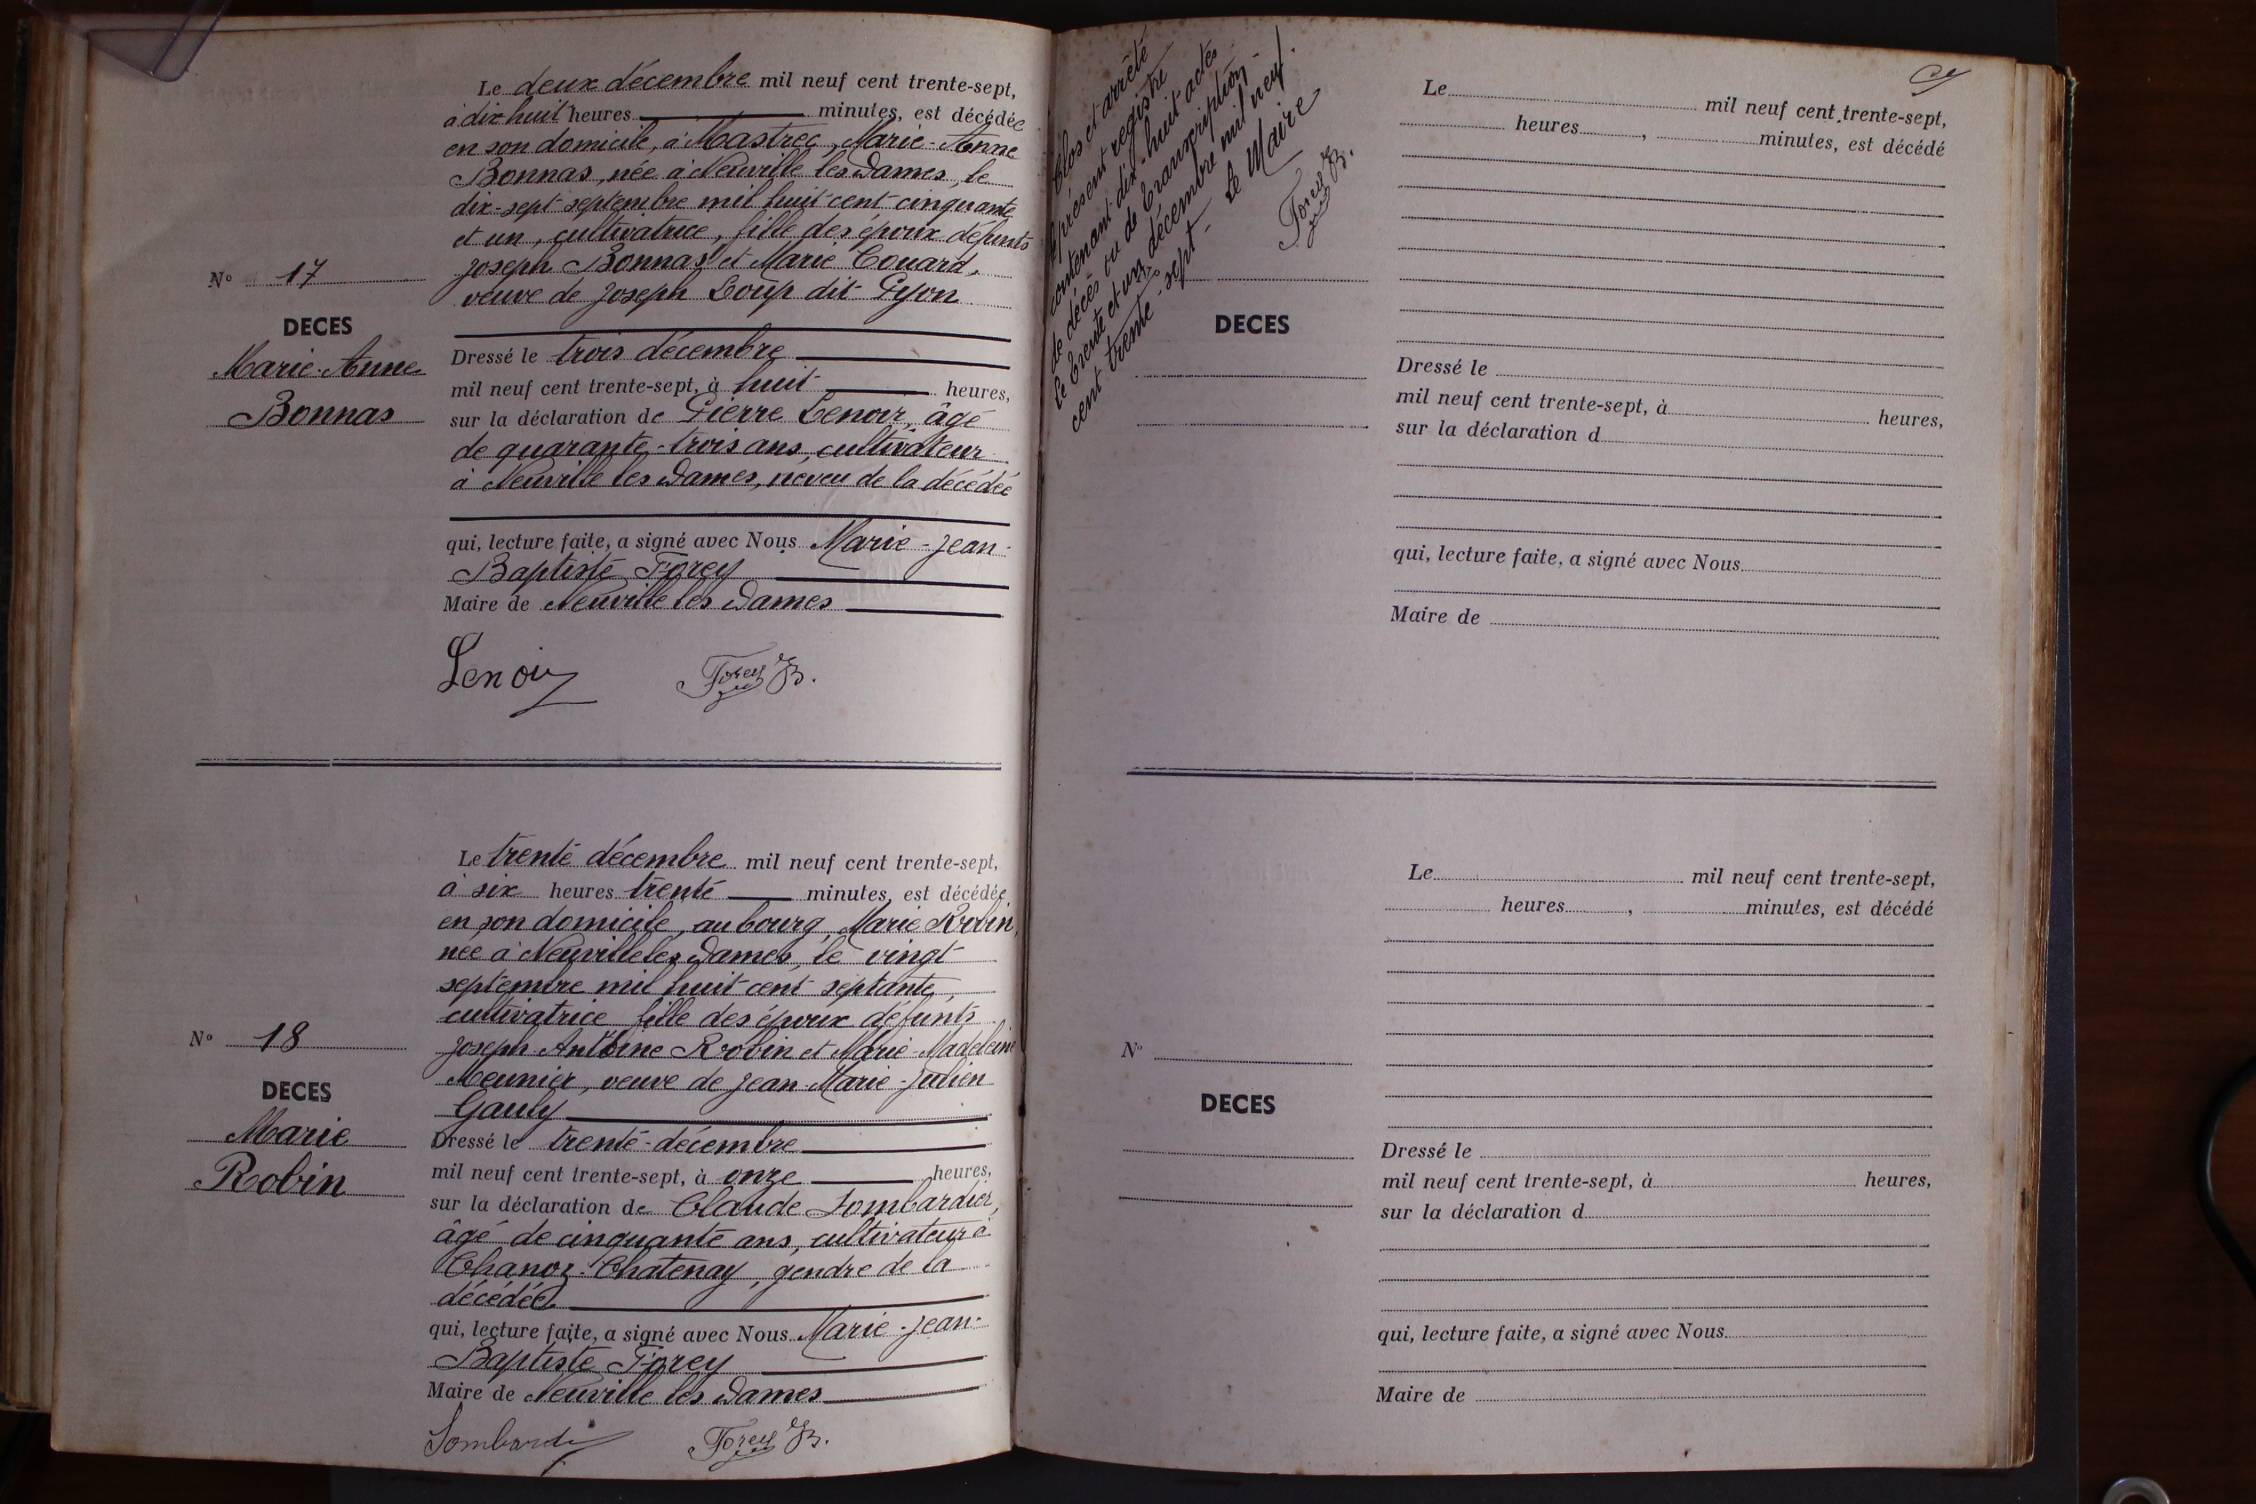 Le deux décembre mil neuf cent trente-sept,
à dix huit heures minutes, est décédée
en son domicile, à Mastrec, Marie-Anne
Bonnas, née à Neuville les Dames, le
dix-sept septembre mil huit cent cinquante
et un, cultivatrice, fille des époux défunts
Joseph Bonnas et Marie Couard,
veuve de Joseph Loup dit Pyon
N° 17
DECES
Marie-Anne
Bonnas
Dressé le trois décembre
mil neuf cent trente-sept, à huit heures,
sur la déclaration de Pierre Lenoir, âgé
de quarante-trois ans, cultivateur
à Neuville les Dames, neveu de la décédée
qui, lecture faite, a signé avec Nous Marie-Jean-
Baptiste Forey
Maire de Neuville les Dames
Lenoir Forey JB.
Le trente décembre mil neuf cent trente-sept,
à six heures trente minutes, est décédée
en son domicile, au bourg, Marie Robin,
née à Neuville les Dames, le vingt
septembre mil huit cent septante,
cultivatrice fille des époux défunts
Joseph Antoine Robin et Marie-Madeleine
Meunier, veuve de Jean Marie-Julien
Gauly
N° 18
DECES
Marie
Robin
Dressé le trente-décembre
mil neuf cent trente-sept, à onze heures,
sur la déclaration de Claude Lombardier,
âgé de cinquante ans, cultivateur à
Chanoz-Chatenay, gendre de la
décédée
qui, lecture faite, a signé avec Nous Marie-Jean-
Baptiste Forey
Maire de Neuville les Dames
Lombardi Forey JB.
Clos et arrêté
le présent registre
contenant dix-huit actes
de décès ou de transcription
le trente et un décembre mil neuf
cent trente-sept-
Le Maire
Forey JB.
Le mil neuf cent trente-sept,
heures, minutes, est décédé
DECES
Dressé le
mil neuf cent trente-sept, à heures,
sur la déclaration d
qui, lecture faite, a signé avec Nous
Maire de
Le mil neuf cent trente-sept,
heures, minutes, est décédé
N°
DECES
Dressé le
mil neuf cent trente-sept, à heures,
sur la déclaration d
qui, lecture faite, a signé avec Nous
Maire de